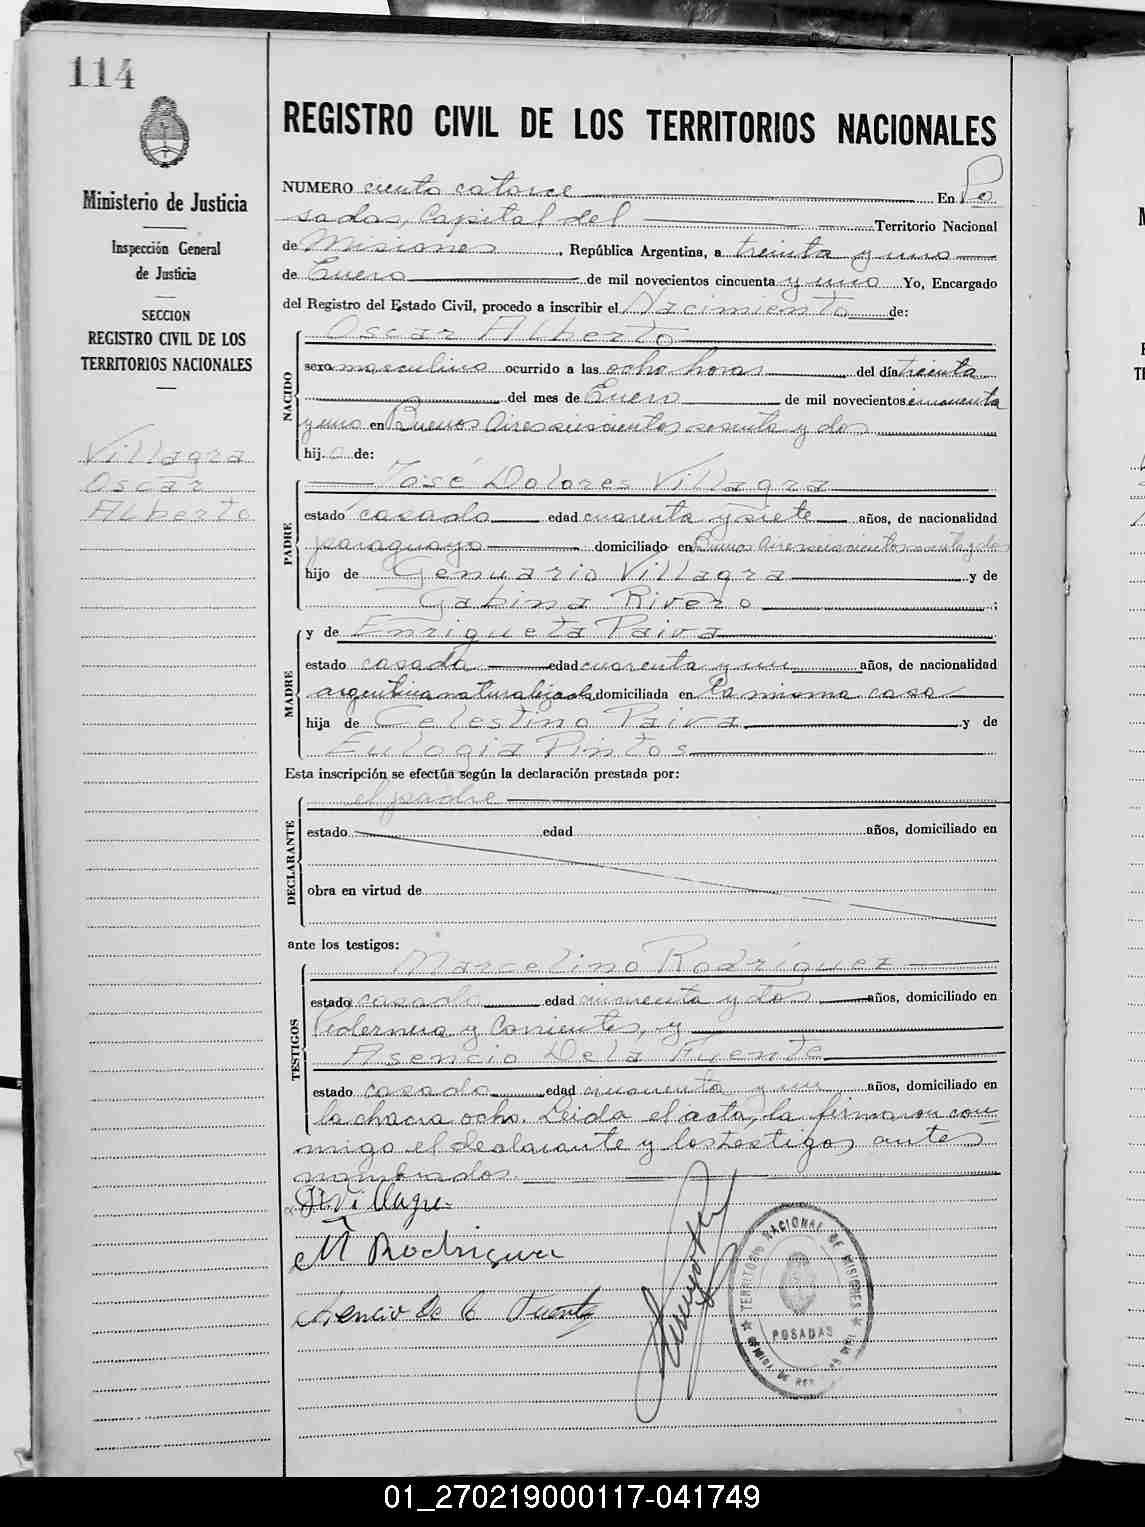 114
Ministerio de Justicia
Inspección General
de Justicia
SECCION
REGISTRO CIVIL DE LOS
TERRITORIOS NACIONALES
Villagra
Oscar
Alberto
REGISTRO CIVIL DE LOS TERRITORIOS NACIONALES
NUMERO ciento catorce En Po
sadas, Capital del Territorio Nacional
de Misiones, República Argentina, a treinta y uno
de Enero de mil novecientos cincuenta y uno Yo, Encargado
del Registro del Estado Civil, procedo a inscribir el Nacimiento de:
NACIDO
Oscar Alberto
sexo masculino ocurrido a las ocho horas del día treinta
del mes de Enero de mil novecientos cincuenta
y uno en Buenos Aires seiscientos sesenta y dos
hij o de:
PADRE
José Dolores Villagra
estado casado edad cuarenta y siete años, de nacionalidad
paraguayo domiciliado en Buenos Aires seiscientos sesenta y dos
hijo de Genuario Villagra y de
Gabina Rivero ;
MADRE
y de Enriqueta Paiva
estado casada edad cuarenta y un años, de nacionalidad
argentina naturalizada domiciliada en la misma casa
hija de Celestino Paiva y de
Eulogia Pintos
Esta inscripción se efectúa según la declaración prestada por:
DECLARANTE
el padre
estado edad años, domiciliado en
obra en virtud de
ante los testigos:
TESTIGOS
Marcelino Rodríguez
estado casado edad cincuenta y dos años, domiciliado en
y Corrientes, y
Asencio De la Fuente
estado casado edad cincuenta y un años, domiciliado en
la chacra ocho. Leida el acta, la firmaron con
migo el declarante y los testigos antes
nombrados.
Villagra
M Rodriguez
Asencio de la Fuente
TERRITORIO NACIONAL DE MISIONES
POSADAS
01_270219000117-041749